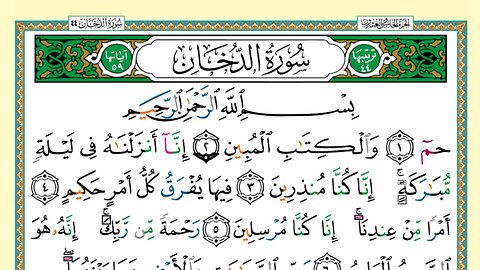 الجزء الخامس والعشرون سورة الدخان ٤٤
ترتيبها ٤٤ سُورَةُ الدُّخَانِ آياتها ٥٩
بِسْمِ اللَّهِ الرَّحْمَٰنِ الرَّحِيمِ
حمٓ ١ وَالْكِتَابِ الْمُبِينِ ٢ إِنَّآ أَنزَلْنَاهُ فِي لَيْلَةٍ
مُّبَارَكَةٍ ۚ إِنَّا كُنَّا مُنذِرِينَ ٣ فِيهَا يُفْرَقُ كُلُّ أَمْرٍ حَكِيمٍ ٤
أَمْرًا مِّنْ عِندِنَآ ۚ إِنَّا كُنَّا مُرْسِلِينَ ٥ رَحْمَةً مِّن رَّبِّكَ ۚ إِنَّهُ هُوَ